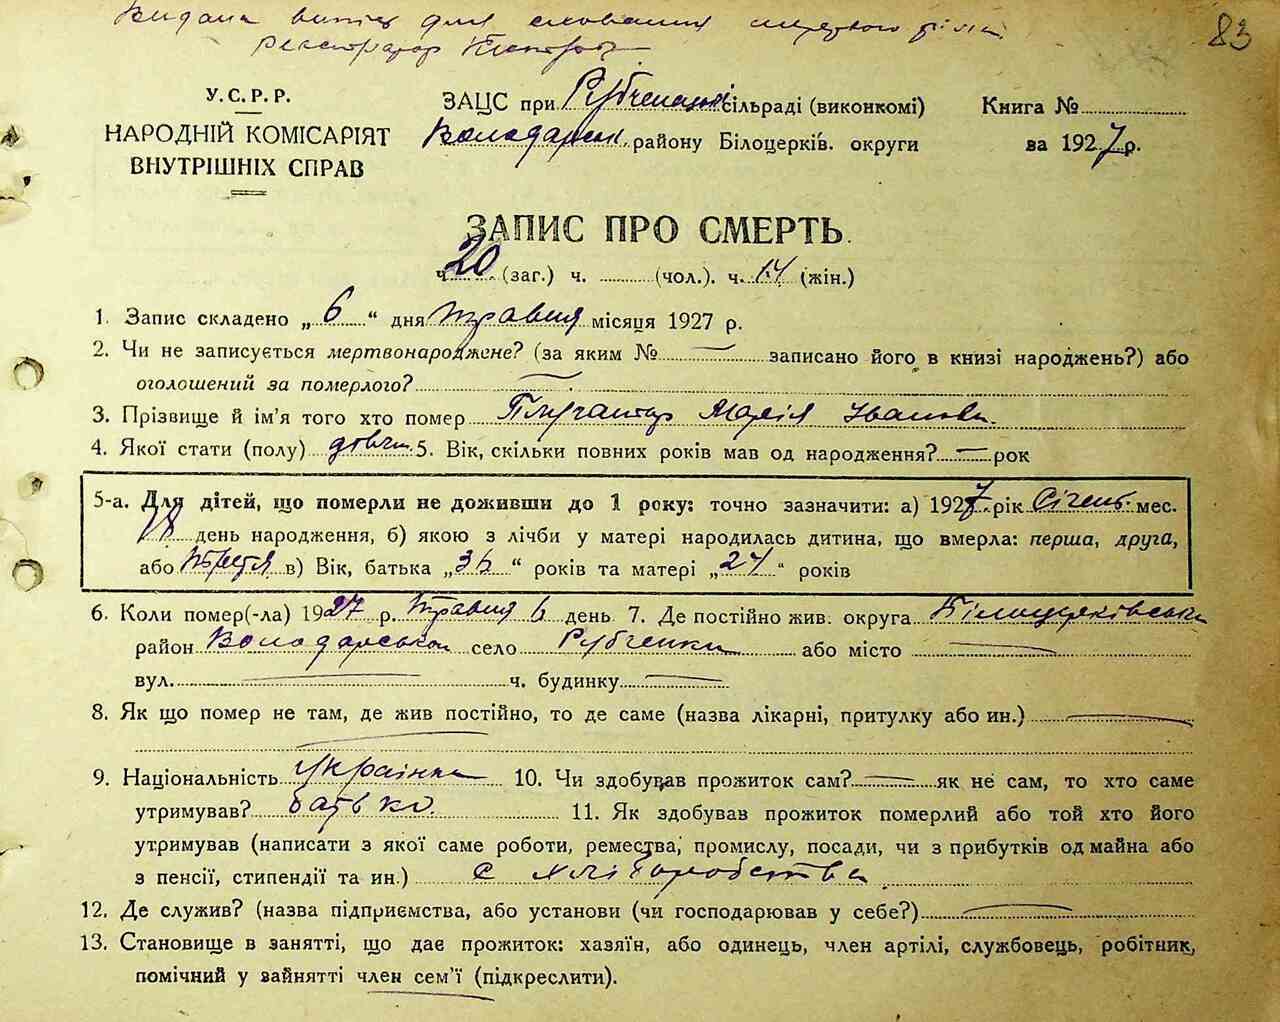 Видана випись для сховання мертвого тіла
Реєстратор
83
У.С.Р.Р.
НАРОДНІЙ КОМІСАРІЯТ
ВНУТРІШНІХ СПРАВ
ЗАЦС при Рубченській сільраді (виконкомі)
Володарськ. району Білоцерків. округи
Книга №
за 1927 р.
ЗАПИС ПРО СМЕРТЬ.
ч. 20 (заг.) ч. (чол.). ч. 14 (жін.)
1. Запис складено „ 6 “ дня травня місяця 1927 р.
2. Чи не записується мертвонароджене? (за яким № — записано його в книзі народжень?) або
оголошений за померлого? —
3. Прізвище й ім'я того хто помер Марія Іванова
4. Якої стати (полу) дівч. 5. Вік, скільки повних років мав од народження? — рок
5-а. Для дітей, що померли не доживши до 1 року: точно зазначити: а) 1927 рік Січень мес.
18 день народження, б) якою з лічби у матері народилась дитина, що вмерла: перша, друга,
або третя в) Вік, батька „ “ років та матері „ 24 “ років
6. Коли помер(-ла) 1927 р. травня 6 день 7. Де постійно жив. округа Білоцерківська
район Володарськой село Рубченки або місто —
вул. — ч. будинку —
8. Як що помер не там, де жив постійно, то де саме (назва лікарні, притулку або ин.) —
9. Національність українка 10. Чи здобував прожиток сам? — як не сам, то хто саме
утримував? батько. 11. Як здобував прожиток померлий або той хто його
утримував (написати з якої саме роботи, ремества, промислу, посади, чи з прибутків од майна або
з пенсії, стипендії та ин.) с хліборобства
12. Де служив? (назва підприємства, або установи (чи господарював у себе?) —
13. Становище в занятті, що дає прожиток: хазяїн, або одинець, член артілі, службовець, робітник,
помічний у зайнятті член сем'ї (підкреслити).